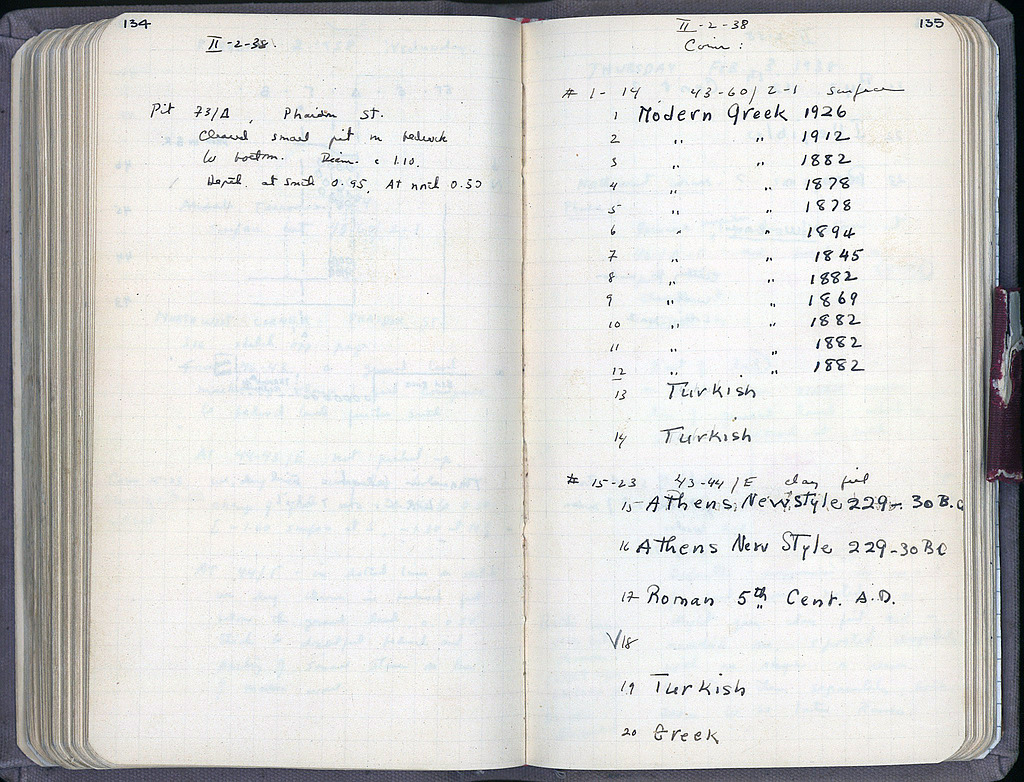 134
II-2-38.
Pit 73/Δ, Phaidon St.
Cleared small pit in bedrock
to bottom. Diam. c 1.10.
Depth at south 0.95, At north 0.30
135
II-2-38
Coins:
# 1-14 43-60/2-1 surface
1 Modern Greek 1926
2 " " 1912
3 " " 1882
4 " " 1878
5 " " 1878
6 " " 1894
7 " " 1845
8 " " 1882
9 " " 1869
10 " " 1882
11 " " 1882
12 " " 1882
13 Turkish
14 Turkish
# 15-23 43-44/E clay fill
15 Athens, New Style 229-30 B.C
16 Athens New Style 229-30 BC
17 Roman 5th Cent. A.D.
V18
19 Turkish
20 Greek